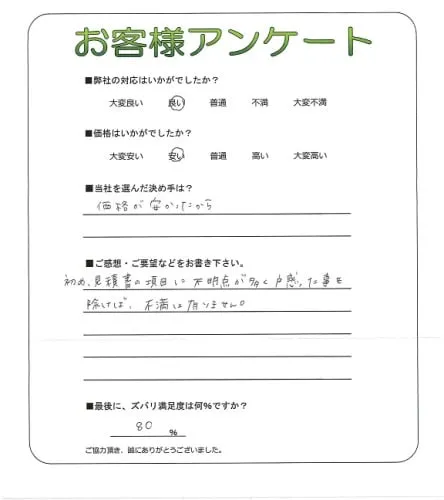 お客様アンケート
■弊社の対応はいかがでしたか？
大変良い 良い 普通 不満 大変不満
■価格はいかがでしたか？
大変安い 安い 普通 高い 大変高い
■当社を選んだ決め手は？
価格が安かったから
■ご感想・ご要望などをお書き下さい。
初め、見積書の項目に不明点が多く戸惑った事を
除けば、不満は有りません。
■最後に、ズバリ満足度は何%ですか？
80 %
ご協力頂き、誠にありがとうございました。